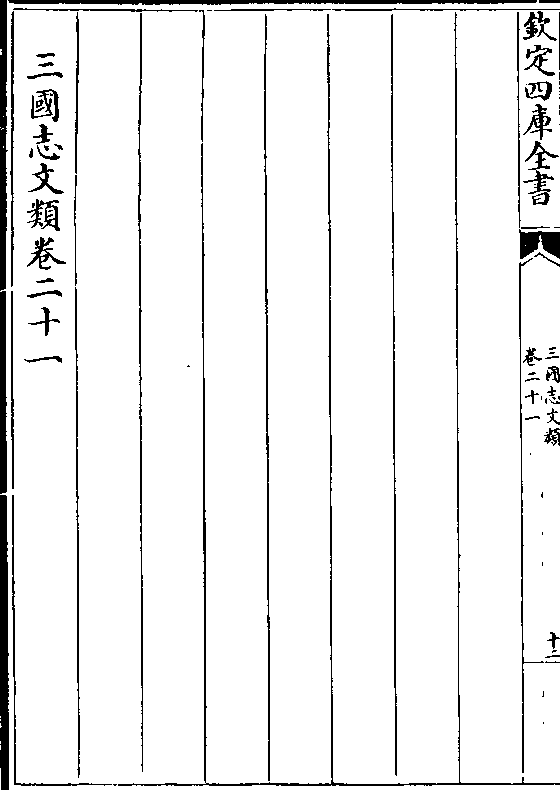 欽定四庫全書
三國志文類
卷二十一
十二
三國志文類卷二十一